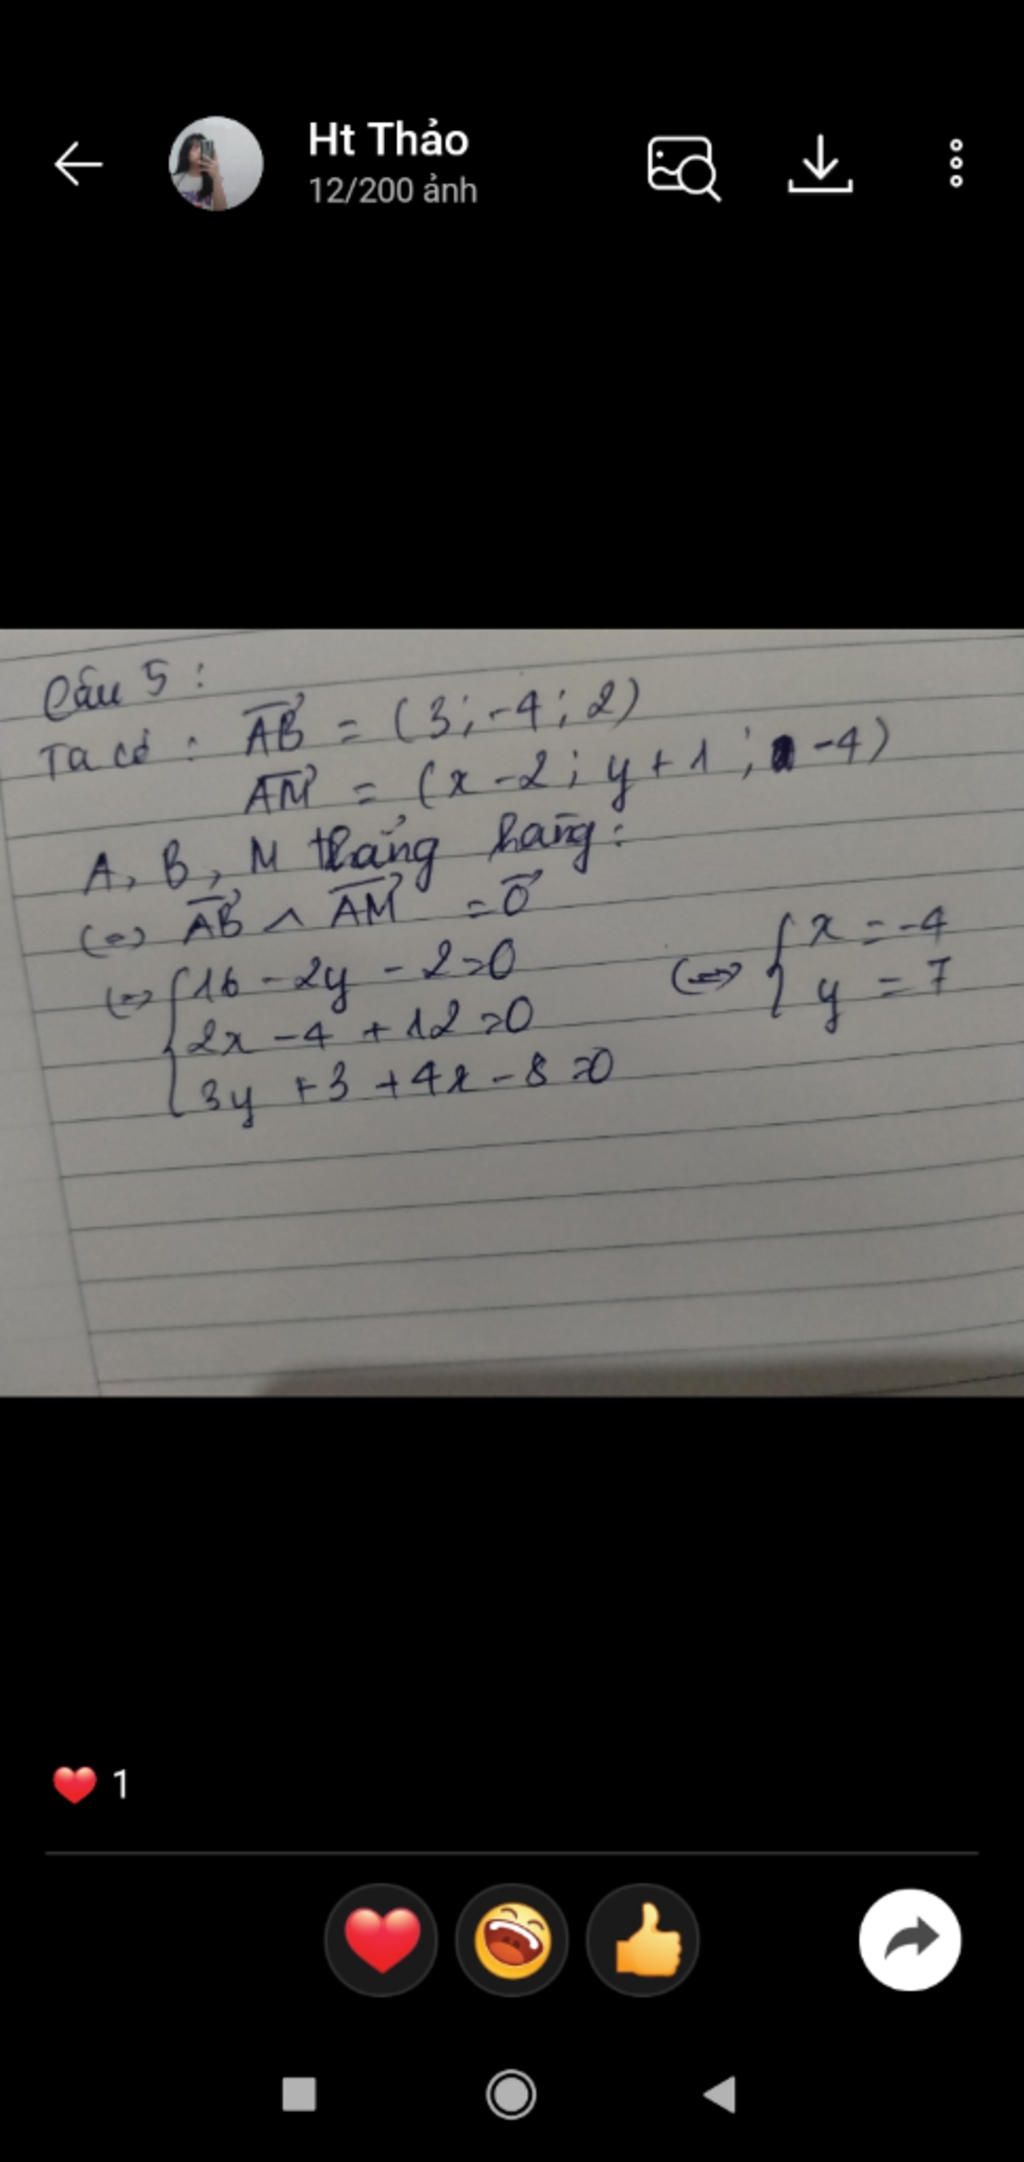 Ht Thảo
12/200 ảnh
Câu 5 :
Ta có : AB = (3 ; -4 ; 2)
AM = (x - 2 ; y + 1 ; -4)
A, B, M thẳng hàng :
(=) AB ∧ AM = 0
(=> { 16 - 2y - 2 = 0
2x - 4 + 12 = 0
3y + 3 + 4x - 8 = 0
(=> { x = -4
y = 7
1